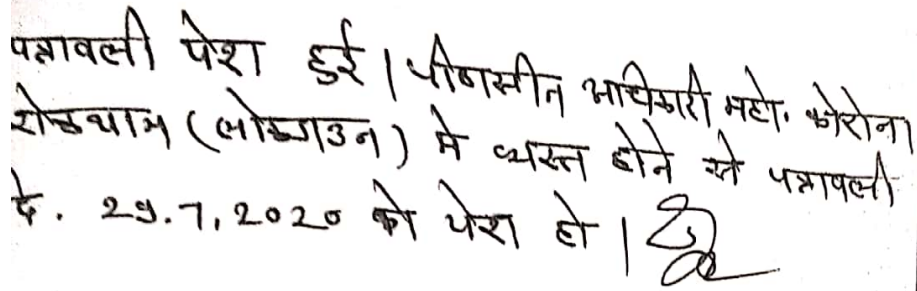 पत्रावली पेश हुई। पीठासीन अधिकारी महो. कोरोना
रोकथाम (लोकडाउन) मे व्यस्त होने से पत्रावली
दि. 29.7.2020 को पेश हो।